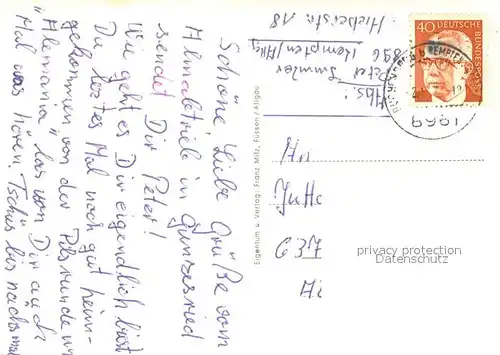 Schöne Liebe Grüße vom
Almabtrieb in Gunzesried
sendet Dir Peter!
Wie geht es Dir eigentlich bist
Du letztes Mal noch gut heim-
gekommen, von der Pilsrunde im
"Alemania" las von Dir auch
Mal was hören. Tschüs bis nächstmal
Abs.:
Peter
896 Kempten/Allg
40 DEUTSCHE
BUNDESPOST
KEMPTEN
8969
Eigentum u. Verlag: Franz Milz, Füssen / Allgäu
An
637
privacy protection
Datenschutz